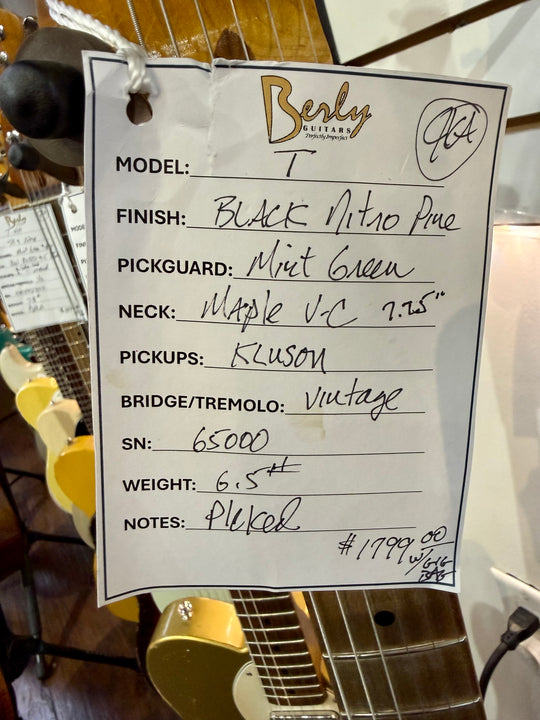 Berly
GUITARS
Perfectly Imperfect
MODEL: T
FINISH: BLACK Nitro Pine
PICKGUARD: Mint Green
NECK: Maple V-C 7.25"
PICKUPS: KLUSON
BRIDGE/TREMOLO: Vintage
SN: 65000
WEIGHT: 6.5#
NOTES: PLeKed
#1799.00
w/GIG
BAG
Berly